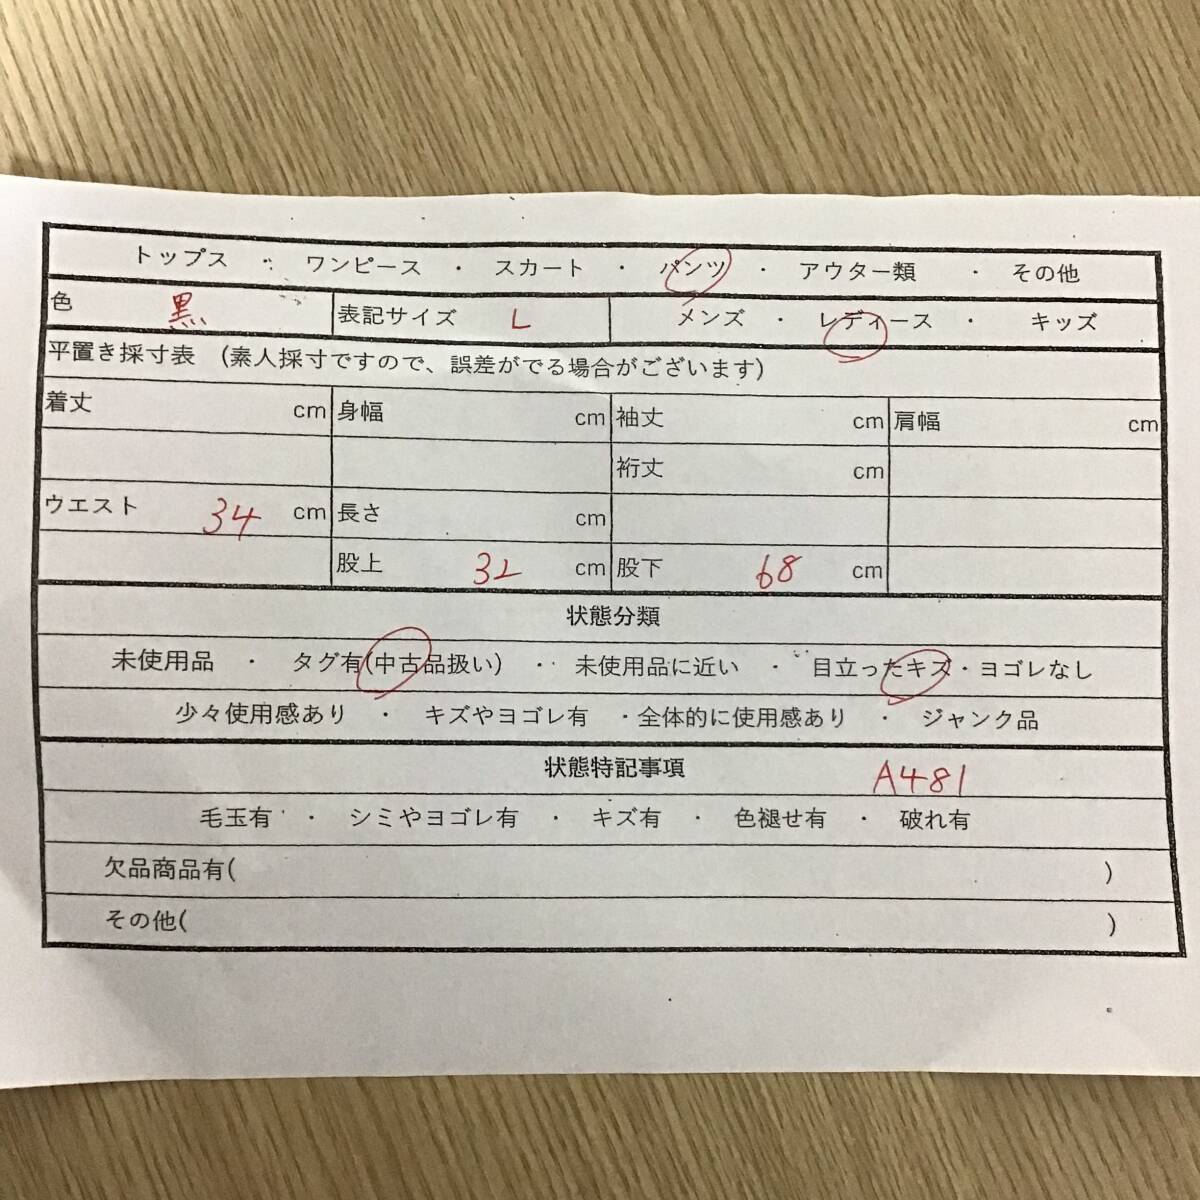 トップス ・ ワンピース ・ スカート ・ パンツ ・ アウター類 ・ その他
色 黒 表記サイズ L メンズ ・ レディース ・ キッズ
平置き採寸表 (素人採寸ですので、誤差がでる場合がございます)
着丈 cm 身幅 cm 袖丈 cm 肩幅 cm
裄丈 cm
ウエスト 34 cm 長さ cm
股上 32 cm 股下 68 cm
状態分類
未使用品 ・ タグ有(中古品扱い) ・ 未使用品に近い ・ 目立ったキズ・ヨゴレなし
少々使用感あり ・ キズやヨゴレ有 ・全体的に使用感あり ・ ジャンク品
状態特記事項 A481
毛玉有 ・ シミやヨゴレ有 ・ キズ有 ・ 色褪せ有 ・ 破れ有
欠品商品有( )
その他( )